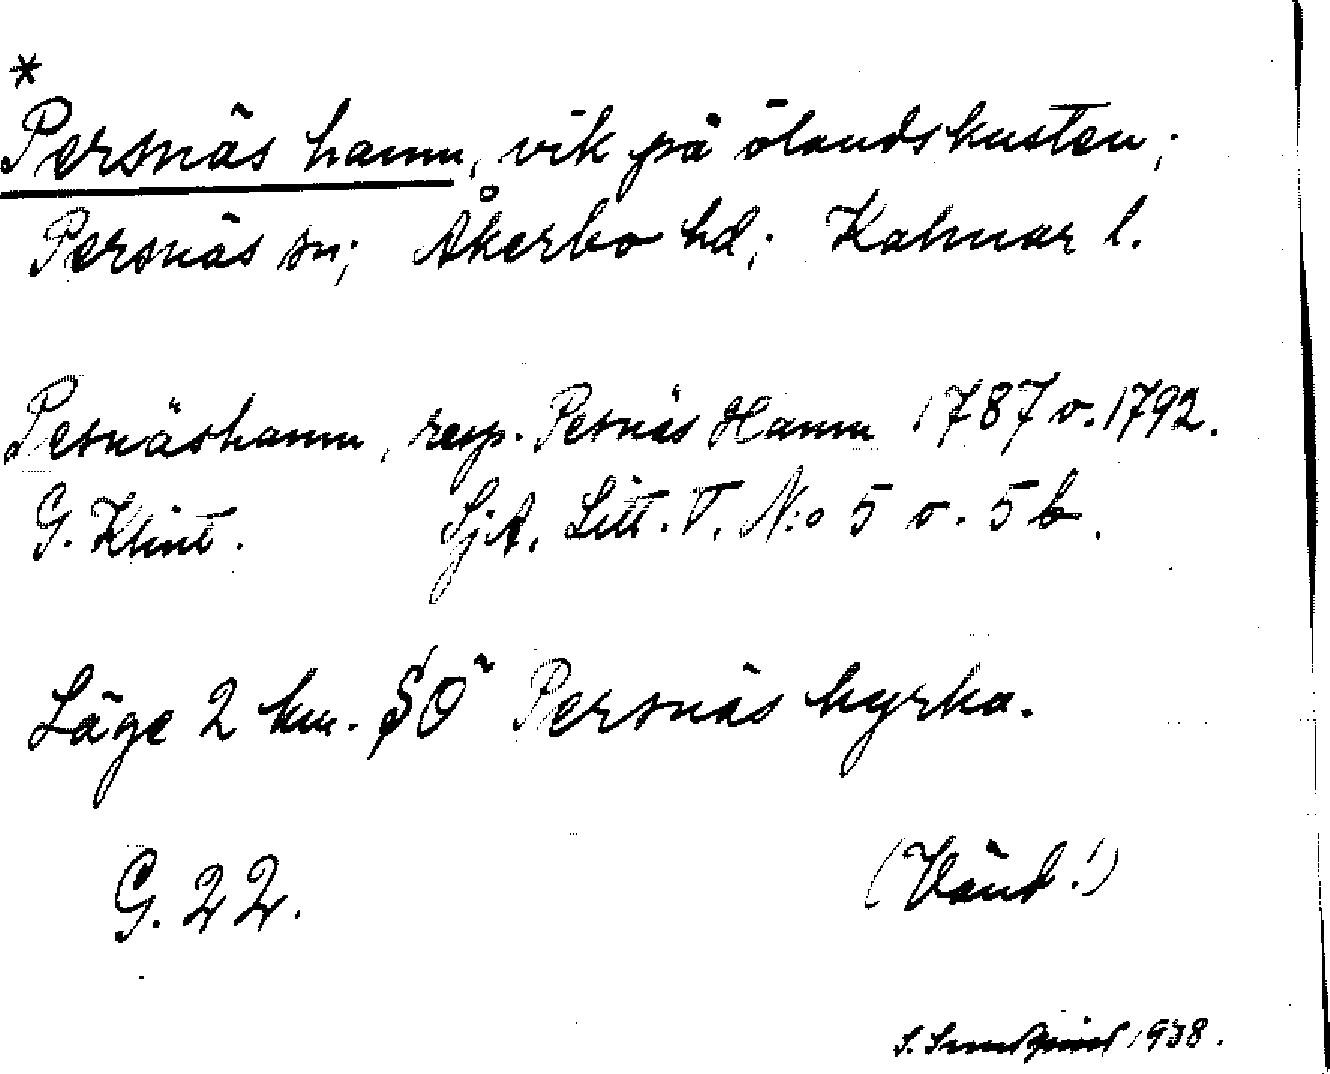 *
Persnäs hamn, vik på ölandskusten;
Persnäs sn; Åkerbo hd; Kalmar l.
Pesnäshamn, resp. Pesnäs Hamn 1787 o. 1792.
G. Klint. SjA. Litt. V. N:o 5 o. 5 b.
Läge 2 km. SÖ Persnäs kyrka.
G. 22. (Vänd!)
S. 1938.